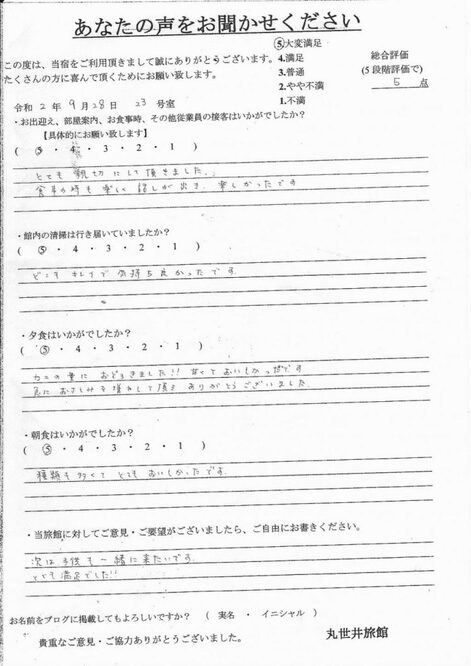 あなたの声をお聞かせください
この度は、当宿をご利用頂きまして誠にありがとうございます。
たくさんの方に喜んで頂くためにお願い致します。
⑤大変満足
4.満足
3.普通
2.やや不満
1.不満
総合評価
(5段階評価で)
5 点
令和 2 年 9 月 28 日 23 号室
・お出迎え、部屋案内、お食事時、その他従業員の接客はいかがでしたか?
【具体的にお願い致します】
( ⑤ ・ 4 ・ 3 ・ 2 ・ 1 )
とても親切にして頂きました。
食事の時も楽しく話しが出き、楽しかったです
・館内の清掃は行き届いていましたか?
( ⑤ ・ 4 ・ 3 ・ 2 ・ 1 )
どこもキレイで気持ち良かったです。
・夕食はいかがでしたか?
( ⑤ ・ 4 ・ 3 ・ 2 ・ 1 )
カニの量におどろきました!! 甘くておいしかったです
急におさしみを増やして頂き ありがとうございました
・朝食はいかがでしたか?
( ⑤ ・ 4 ・ 3 ・ 2 ・ 1 )
種類も多くて とてもおいしかったです。
・当旅館に対してご意見・ご要望がございましたら、ご自由にお書きください。
次は子供も一緒に来たいです。
とても満足でした!!
お名前をブログに掲載してもよろしいですか? ( 実名 ・ イニシャル )
貴重なご意見・ご協力ありがとうございました。
丸世井旅館